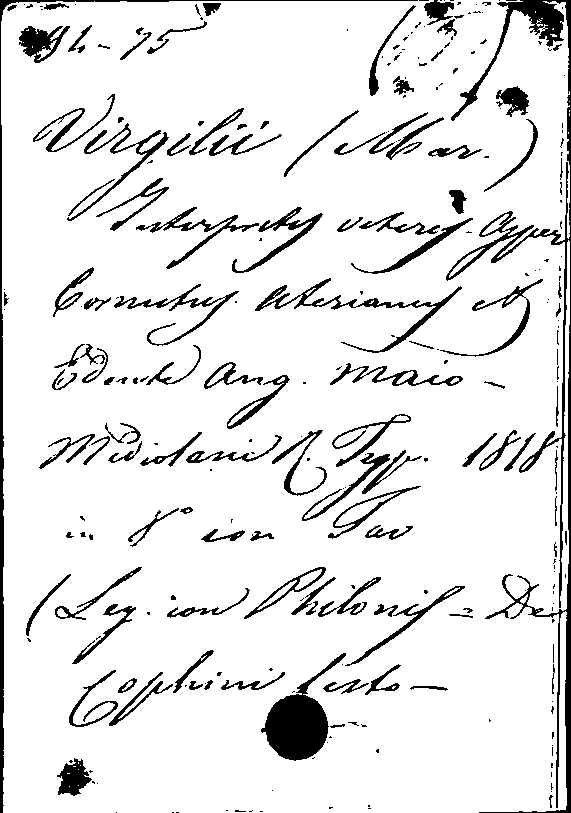 94-75
Virgilii (Mar.)
Interpretes veteres. Asper
Cornutus. Aterianus et
Edente Ang. Maio -
Mediolani R. Typ. 1818
in 8° con Tav
(Leg. con Philonis = De
Cophini festo -